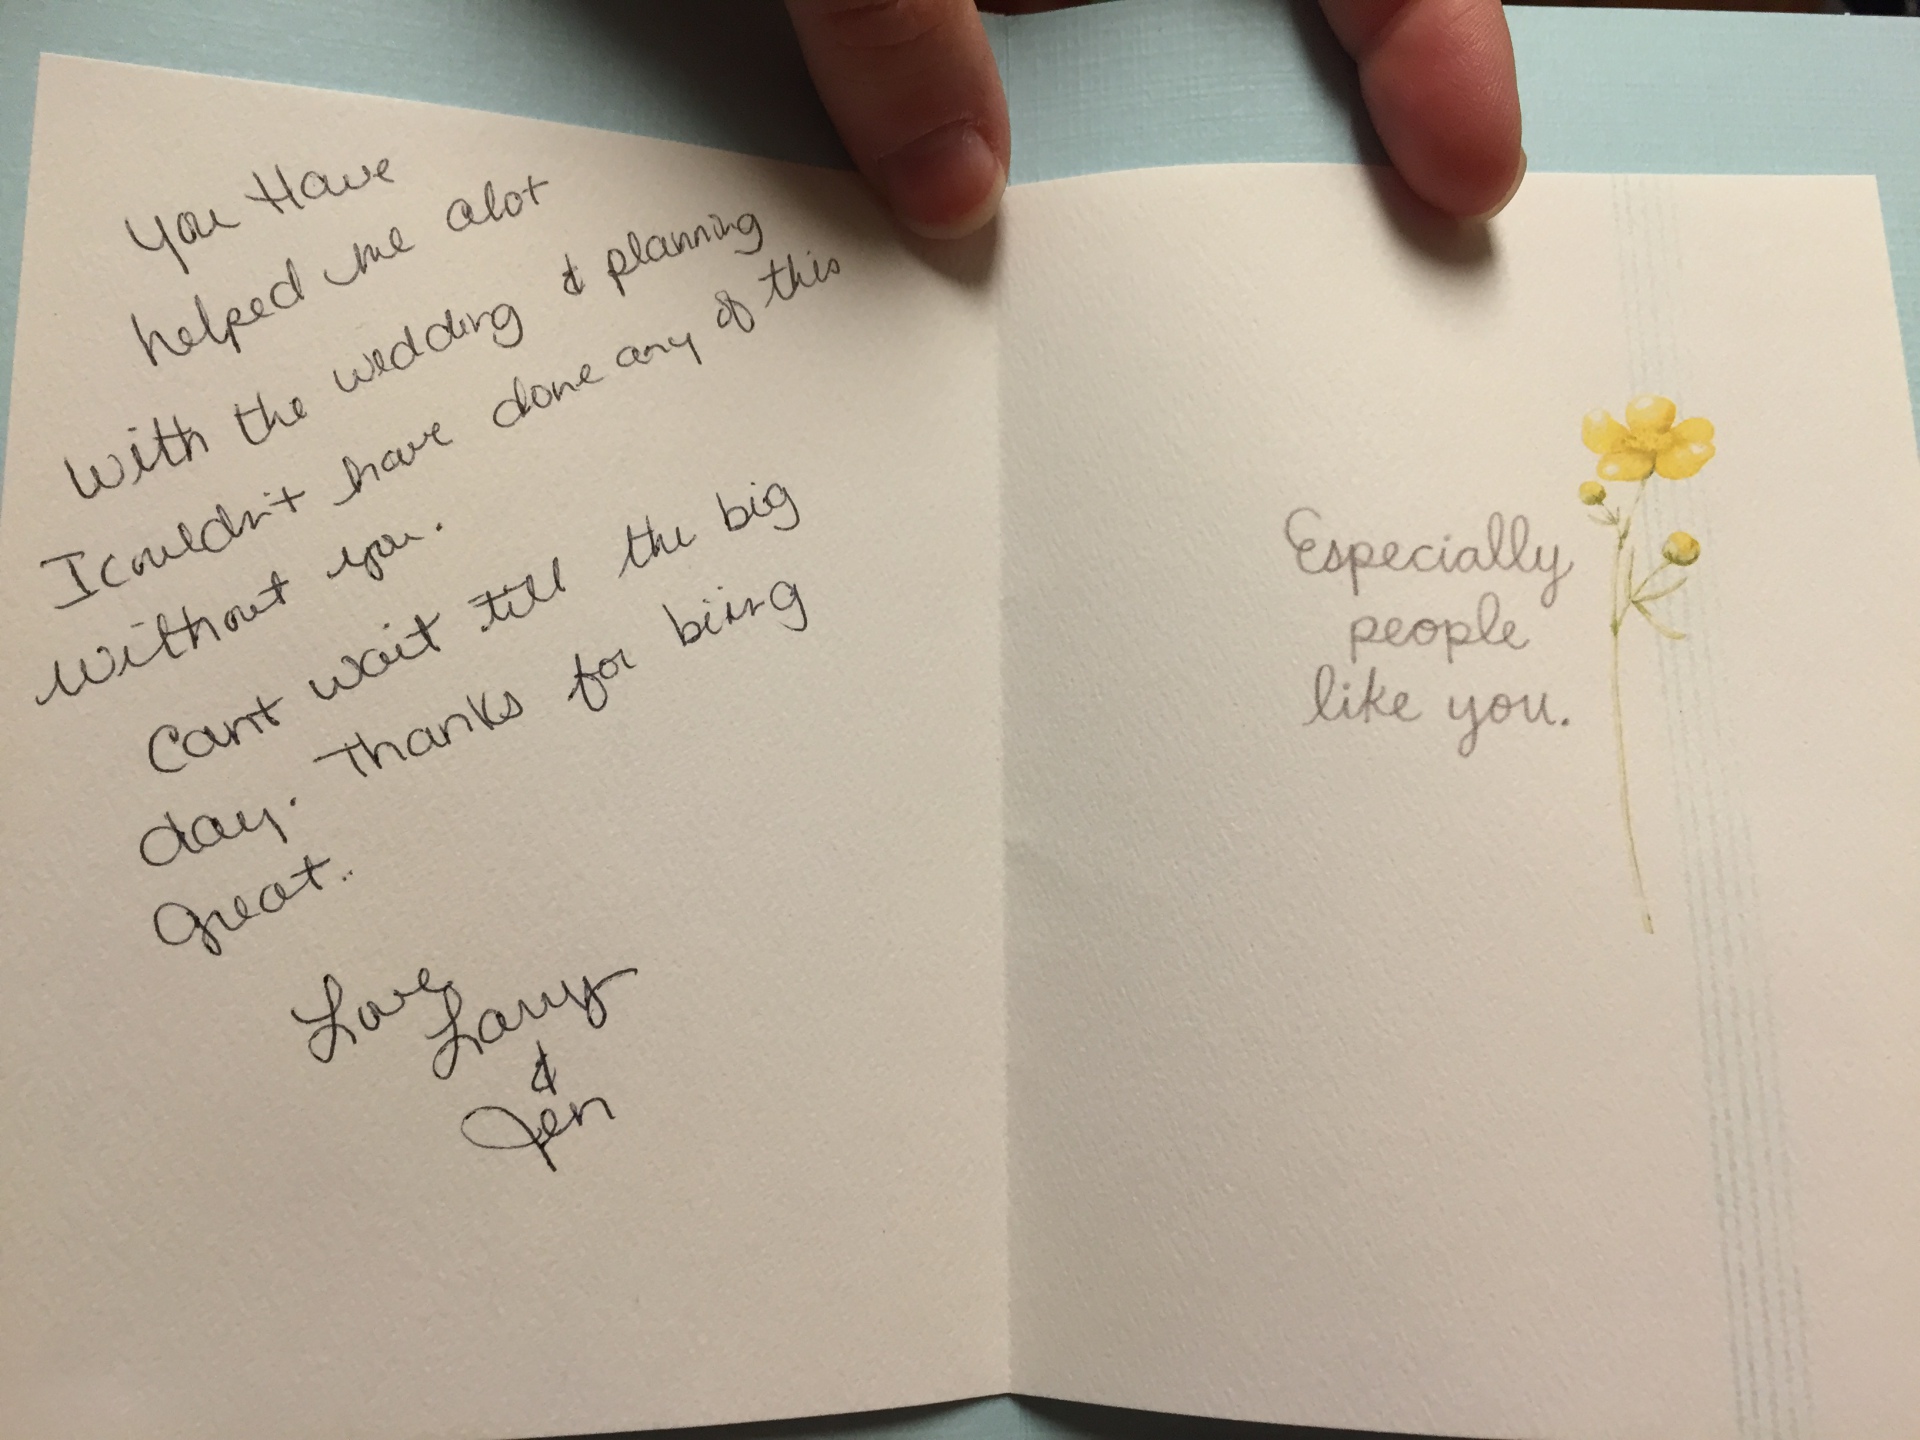 You Have
helped me alot
with the wedding & planning
I couldn't have done any of this
without you.
Can't wait till the big
day. Thanks for biing
Great..
Love,
Larry
&
Jen
Especially
people
like you.